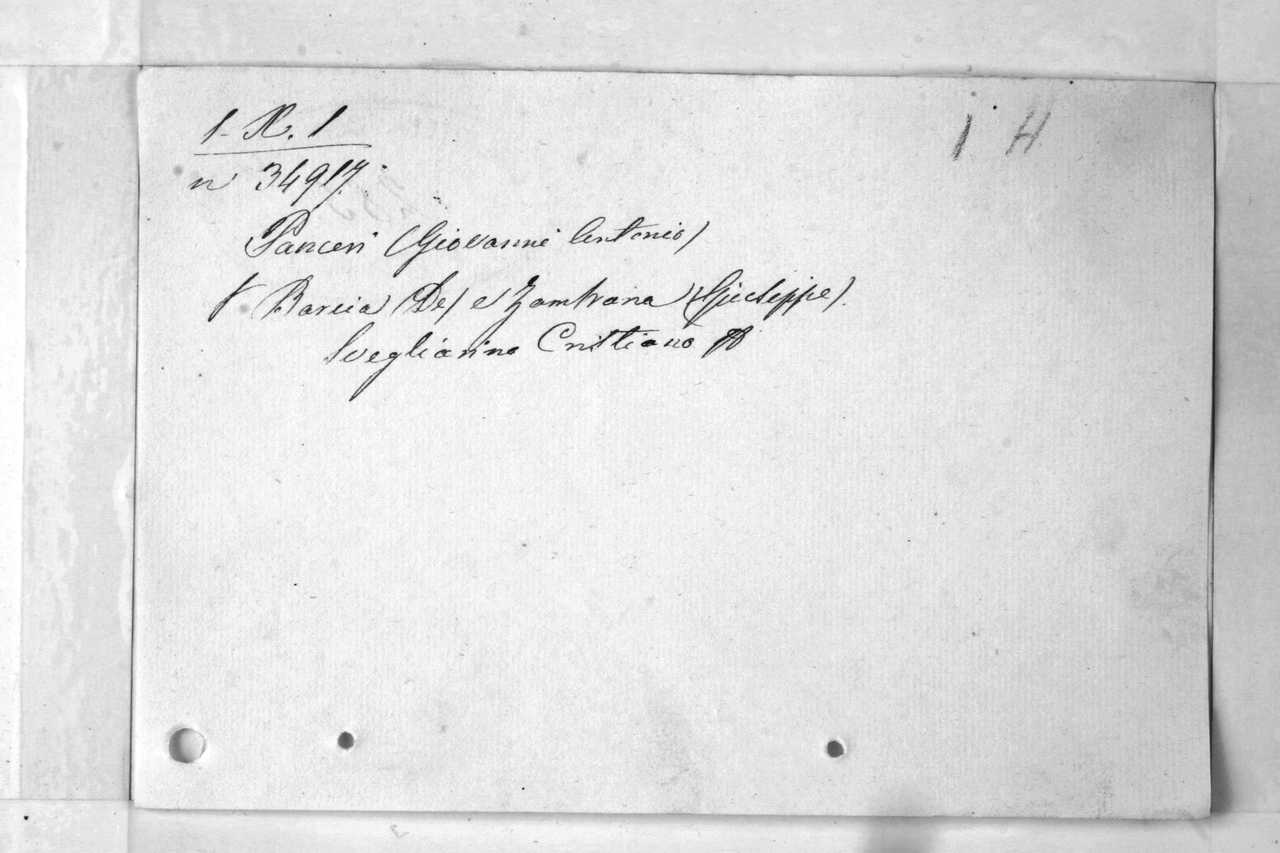 1- R. 1
1 H
n 34917.
Panceri (Giovanni Antonio)
Barcia (De) e Zambrana (Giuseppe).
Svegliarino Cristiano